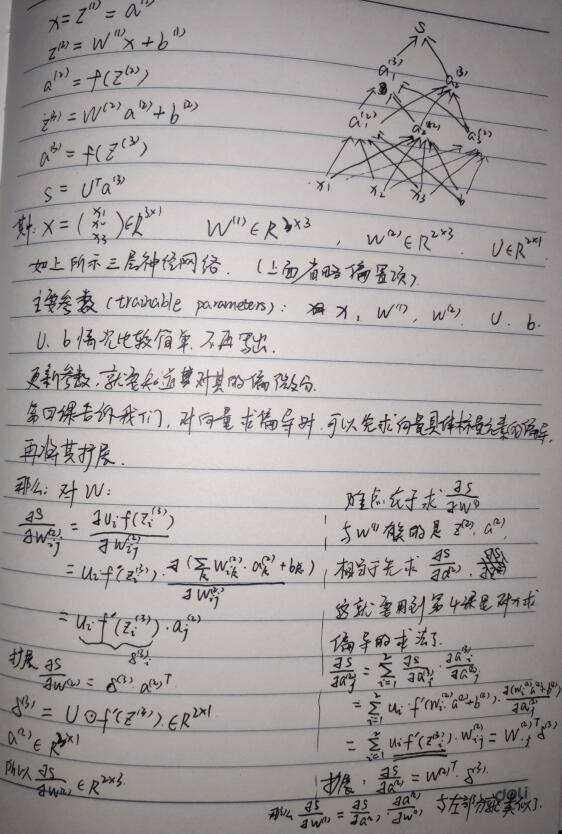 x = z⁽¹⁾ = a⁽¹⁾
z⁽²⁾ = W⁽¹⁾x + b⁽¹⁾
a⁽²⁾ = f(z⁽²⁾)
z⁽³⁾ = W⁽²⁾a⁽²⁾ + b⁽²⁾
a⁽³⁾ = f(z⁽³⁾)
s = Uᵀa⁽³⁾
s
a₁⁽³⁾ a₂⁽³⁾
a₁⁽²⁾ a₂⁽²⁾ a₃⁽²⁾
x₁ x₂ x₃ b
其中: x = (x₁ x₂ x₃) ∈ R³ˣ¹ W⁽¹⁾ ∈ R³ˣ³, W⁽²⁾ ∈ R²ˣ³. U ∈ R²ˣ¹
如上所示三层神经网络. (上面省略偏置项)
主要参数 (trainable parameters): x, W⁽¹⁾, W⁽²⁾. U. b.
U. b 情况比较简单. 不再写出.
更新参数. 就要知道其对其的偏微分.
第四课告诉我们, 对向量求偏导时, 可以先求向量具体标量元素的偏导,
再将其扩展.
那么: 对 W:
∂s/∂Wᵢⱼ⁽²⁾ = ∂Uᵢf(zᵢ⁽³⁾)/∂Wᵢⱼ⁽²⁾
= Uᵢf'(zᵢ⁽³⁾)·∂(∑ₖWᵢₖ⁽²⁾·aₖ⁽²⁾+bₖ)/∂Wᵢⱼ⁽²⁾
= Uᵢf'(zᵢ⁽³⁾)·aⱼ⁽²⁾
δᵢ⁽³⁾
扩展 ∂s/∂W⁽²⁾ = δ⁽³⁾·a⁽²⁾ᵀ
δ⁽³⁾ = U⊙f'(z⁽³⁾) ∈ R²ˣ¹
a⁽²⁾ ∈ R³ˣ¹
所以 ∂s/∂W⁽²⁾ ∈ R²ˣ³.
难点在于求 ∂s/∂W⁽¹⁾
与W⁽¹⁾有关的是 z⁽²⁾. a⁽²⁾.
相当于先求 ∂s/∂a⁽²⁾.
这就要用到第4课是对求
偏导的求法了.
∂s/∂aⱼ⁽²⁾ = ∑ᵢ₌₁² ∂s/∂aᵢ⁽³⁾·∂aᵢ⁽³⁾/∂aⱼ⁽²⁾
= ∑ᵢ₌₁² Uᵢ·f'(Wᵢ⁽²⁾a⁽²⁾+b⁽²⁾)·∂(Wᵢ⁽²⁾a⁽²⁾+b⁽²⁾)/∂aⱼ⁽²⁾
= ∑ᵢ₌₁² Uᵢ·f'(zᵢ⁽³⁾)·Wᵢⱼ⁽²⁾ = W.ⱼ⁽²⁾ᵀδ⁽³⁾
扩展: ∂s/∂a⁽²⁾ = W⁽²⁾ᵀ·δ⁽³⁾.
那么 ∂s/∂W⁽¹⁾ = ∂s/∂a⁽²⁾·∂a⁽²⁾/∂W⁽¹⁾ 与左部分就类似了.
deli